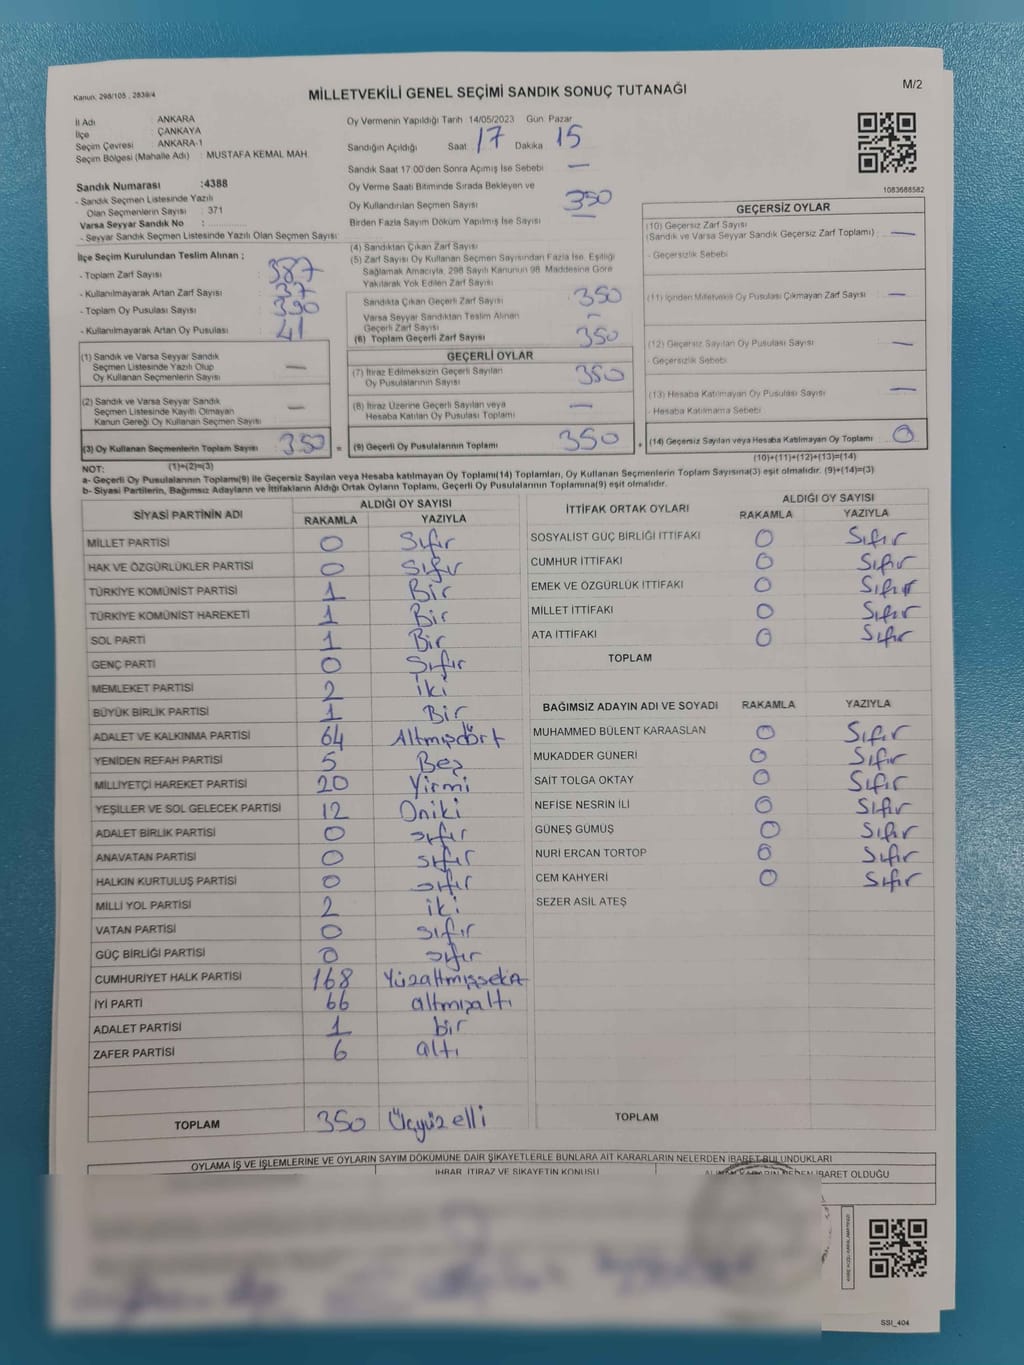 Kanun. 298/105 , 2839/4
MİLLETVEKİLİ GENEL SEÇİMİ SANDIK SONUÇ TUTANAĞI
M/2
İl Adı : ANKARA
İlçe : ÇANKAYA
Seçim Çevresi : ANKARA-1
Seçim Bölgesi (Mahalle Adı) : MUSTAFA KEMAL MAH.
Sandık Numarası :4388
- Sandık Seçmen Listesinde Yazılı
Olan Seçmenlerin Sayısı : 371
Varsa Seyyar Sandık No :
- Seyyar Sandık Seçmen Listesinde Yazılı Olan Seçmen Sayısı:
İlçe Seçim Kurulundan Teslim Alınan ;
- Toplam Zarf Sayısı : 387
- Kullanılmayarak Artan Zarf Sayısı : 37
- Toplam Oy Pusulası Sayısı : 390
- Kullanılmayarak Artan Oy Pusulası : 41
(1) Sandık ve Varsa Seyyar Sandık
Seçmen Listesinde Yazılı Olup
Oy Kullanan Seçmenlerin Sayısı —
(2) Sandık ve Varsa Seyyar Sandık
Seçmen Listesinde Kayıtlı Olmayan
Kanun Gereği Oy Kullanan Seçmen Sayısı —
(3) Oy Kullanan Seçmenlerin Toplam Sayısı 350
(1)+(2)=(3)
Oy Vermenin Yapıldığı Tarih 14/05/2023 Gün: Pazar
Sandığın Açıldığı Saat 17 Dakika 15
Sandık Saat 17:00'den Sonra Açılmış İse Sebebi —
Oy Verme Saati Bitiminde Sırada Bekleyen ve
Oy Kullandırılan Seçmen Sayısı 350
Birden Fazla Sayım Döküm Yapılmış İse Sayısı
(4) Sandıktan Çıkan Zarf Sayısı
(5) Zarf Sayısı Oy Kullanan Seçmen Sayısından Fazla İse, Eşitliği
Sağlamak Amacıyla, 298 Sayılı Kanunun 98. Maddesine Göre
Yakılarak Yok Edilen Zarf Sayısı
Sandıkta Çıkan Geçerli Zarf Sayısı 350
Varsa Seyyar Sandıktan Teslim Alınan
Geçerli Zarf Sayısı —
(6) Toplam Geçerli Zarf Sayısı 350
GEÇERLİ OYLAR
(7) İtiraz Edilmeksizin Geçerli Sayılan
Oy Pusulalarının Sayısı 350
(8) İtiraz Üzerine Geçerli Sayılan veya
Hesaba Katılan Oy Pusulası Toplamı —
= (9) Geçerli Oy Pusulalarının Toplamı 350
1083688582
GEÇERSİZ OYLAR
(10) Geçersiz Zarf Sayısı
(Sandık ve Varsa Seyyar Sandık Geçersiz Zarf Toplamı) : —
- Geçersizlik Sebebi
(11) İçinden Milletvekili Oy Pusulası Çıkmayan Zarf Sayısı —
(12) Geçersiz Sayılan Oy Pusulası Sayısı —
- Geçersizlik Sebebi
(13) Hesaba Katılmayan Oy Pusulası Sayısı —
- Hesaba Katılmama Sebebi
+ (14) Geçersiz Sayılan veya Hesaba Katılmayan Oy Toplamı 0
(10)+(11)+(12)+(13)=(14)
NOT:
a- Geçerli Oy Pusulalarının Toplamı(9) ile Geçersiz Sayılan veya Hesaba katılmayan Oy Toplamı(14) Toplamları, Oy Kullanan Seçmenlerin Toplam Sayısına(3) eşit olmalıdır. (9)+(14)=(3)
b- Siyasi Partilerin, Bağımsız Adayların ve İttifakların Aldığı Ortak Oyların Toplamı, Geçerli Oy Pusulalarının Toplamına(9) eşit olmalıdır.
SİYASİ PARTİNİN ADI ALDIĞI OY SAYISI
RAKAMLA YAZIYLA
MİLLET PARTİSİ 0 Sıfır
HAK VE ÖZGÜRLÜKLER PARTİSİ 0 Sıfır
TÜRKİYE KOMÜNİST PARTİSİ 1 Bir
TÜRKİYE KOMÜNİST HAREKETİ 1 Bir
SOL PARTİ 1 Bir
GENÇ PARTİ 0 Sıfır
MEMLEKET PARTİSİ 2 iki
BÜYÜK BİRLİK PARTİSİ 1 Bir
ADALET VE KALKINMA PARTİSİ 64 Altmışdört
YENİDEN REFAH PARTİSİ 5 Beş
MİLLİYETÇİ HAREKET PARTİSİ 20 Yirmi
YEŞİLLER VE SOL GELECEK PARTİSİ 12 Oniki
ADALET BİRLİK PARTİSİ 0 sıfır
ANAVATAN PARTİSİ 0 sıfır
HALKIN KURTULUŞ PARTİSİ 0 sıfır
MİLLİ YOL PARTİSİ 2 iki
VATAN PARTİSİ 0 sıfır
GÜÇ BİRLİĞİ PARTİSİ 0 sıfır
CUMHURİYET HALK PARTİSİ 168
İYİ PARTİ 66 altmışaltı
ADALET PARTİSİ 1 bir
ZAFER PARTİSİ 6 altı
TOPLAM 350 Üçyüz elli
İTTİFAK ORTAK OYLARI ALDIĞI OY SAYISI
RAKAMLA YAZIYLA
SOSYALİST GÜÇ BİRLİĞİ İTTİFAKI 0 Sıfır
CUMHUR İTTİFAKI 0 Sıfır
EMEK VE ÖZGÜRLÜK İTTİFAKI 0 Sıfır
MİLLET İTTİFAKI 0 Sıfır
ATA İTTİFAKI 0 Sıfır
TOPLAM
BAĞIMSIZ ADAYIN ADI VE SOYADI RAKAMLA YAZIYLA
MUHAMMED BÜLENT KARAASLAN 0 Sıfır
MUKADDER GÜNERİ 0 Sıfır
SAİT TOLGA OKTAY 0 Sıfır
NEFİSE NESRİN İLİ 0 Sıfır
GÜNEŞ GÜMÜŞ 0 Sıfır
NURİ ERCAN TORTOP 0 Sıfır
CEM KAHYERİ 0 Sıfır
SEZER ASİL ATEŞ
TOPLAM
OYLAMA İŞ VE İŞLEMLERİNE VE OYLARIN SAYIM DÖKÜMÜNE DAİR ŞİKAYETLERLE BUNLARA AİT KARARLARIN NELERDEN İBARET BULUNDUKLARI
İHBAR, İTİRAZ VE ŞİKAYETİN KONUSU
İBARET OLDUĞU
SSI_404